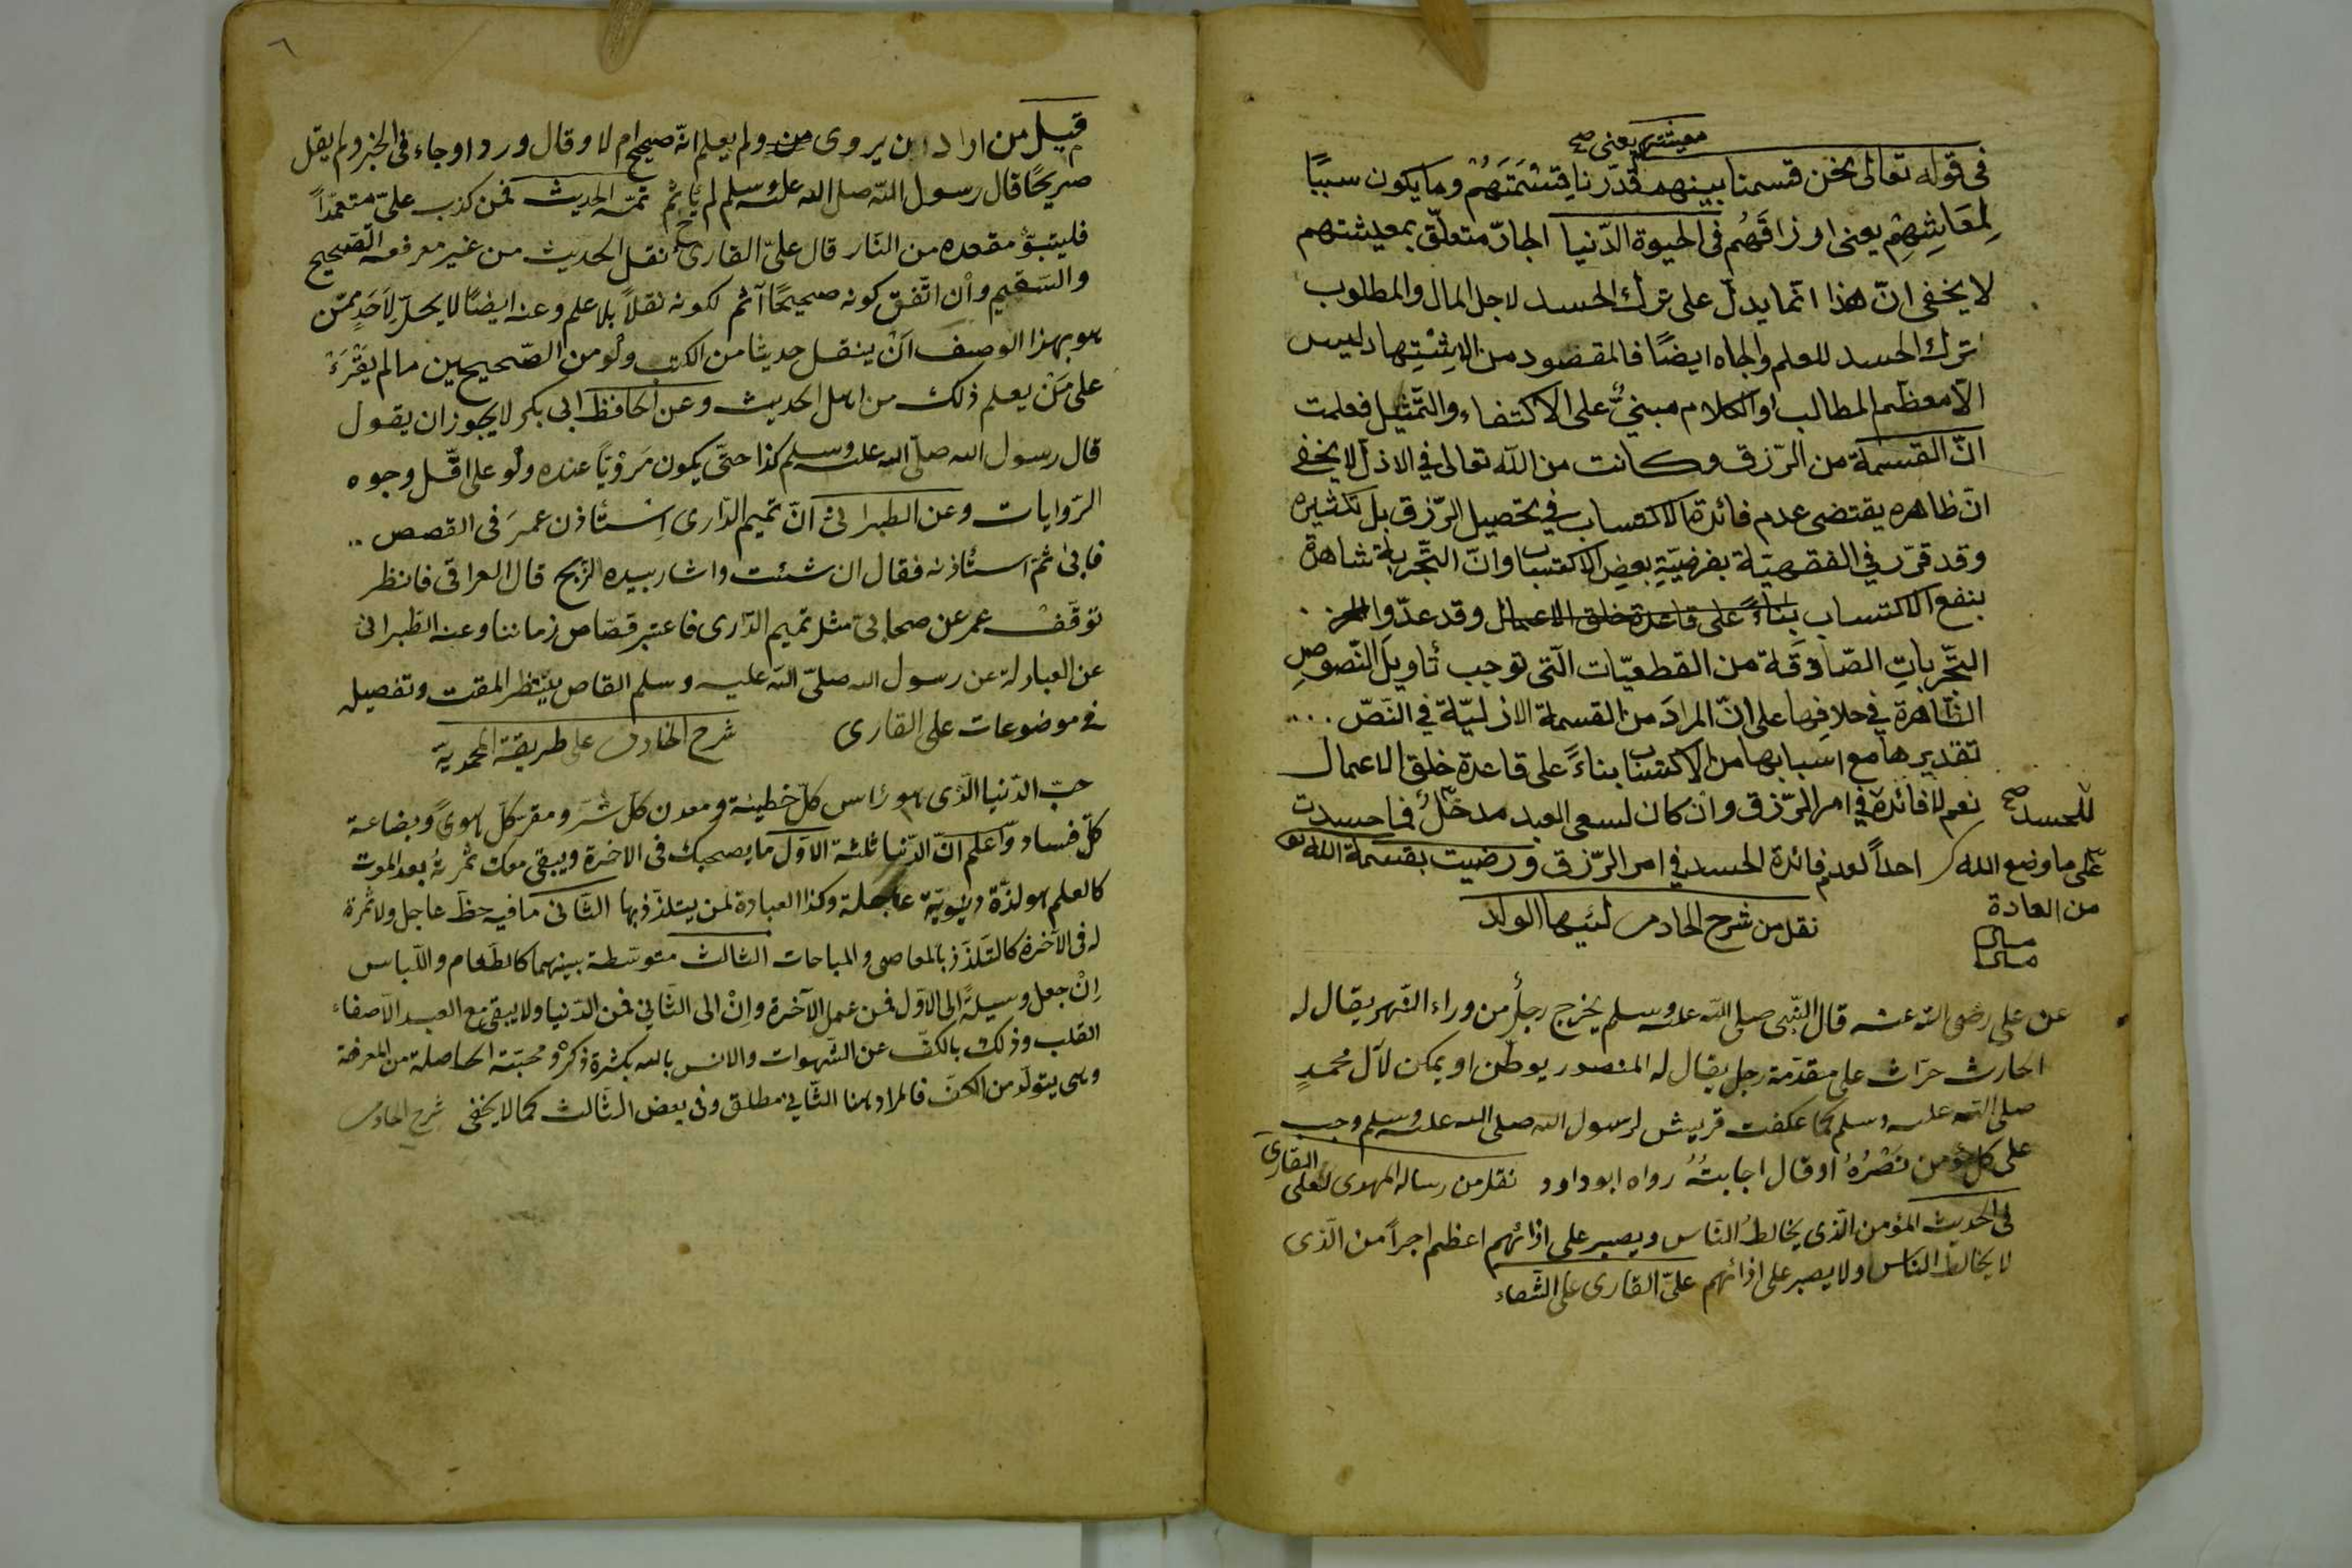 معيشتهم يعنى صح
فى قوله تعالى نحن قسمنا بينهم قدّرنا قِسْمَتَهُمْ وما يكون سببًا
لِمَعَاشِهِمْ يعنى ارزاقَهُم فى الحيوة الدّنيا الجارّ متعلّق بمعيشتهم
لا يخفى انّ هذا انّما يدلّ على ترك الحسد لاجل المال والمطلوب
ترك الحسد للعلم والجاه ايضًا فالمقصود من الاِسْتِشهاد ليس
الاّ معظم المطالب او الكلام مبنىٌّ على الاكتفاء والتّمثيل فعلمت
انّ القسمة من الرّزق وكانت من اللّه تعالى في الازل لا يخفى
انّ ظاهره يقتضى عدم فائدة الاكتساب في تحصيل الرّزق بل تكثيره
وقد قرّر في الفقهيّة بفرضيّةِ بعضِ الاكتساب وانّ التّجربة شاهدة
بنفع الاكتساب بناءً على قاعدة خلق الاعمال وقد عدّوا
التّجرباتِ الصّادقة من القطعيّات الّتى توجب تأويلَ النّصوصِ
الظّاهرة في خلافِها على انّ المرادَ من القسمة الازليّة في النّصّ ...
تقديرها مع اسبابها من الاكتساب بناءً على قاعدة خلق الاعمال
نعم لا فائدة في امر الرّزق وان كان لسعى العبد مدخلٌ فما حسدت
للحسد صح
احداً لعدم فائدة الحسد في امر الرّزق ورضيت بقسمة الله تع
على ما وضع الله
من العادة
نقل من شرح الخادمى لايّها الولد
عن على رضى الله عنه قال النّبى صلى اللّه عليه وسلم يخرج رجلٌ من وراء النّهر يقال له
الحارث حرّاث على مقدّمة رجل يقال له المنصور يوطّن او يمكن لآل محمدٍ
صلى اللّه عليه وسلم كما عكفت قريش لرسول الله صلى الله عليه وسلم وجب
على كل مؤمن نَصْرُهُ او قال اجابتُهُ رواه ابو داود نقل من رسالة المهدى لعلى القارى
فى الحديث المؤمن الّذى يخالطُ النّاس ويصبر على اذائهم اعظم اجراً من الّذى
لا يخالط الناس ولا يصبر على اذائهم علىّ القارى على الشّفاء
٦
قيل من اراد ان يروى ولم يعلم انّه صحيح ام لا وقال ورد او جاء فى الخبر ولم يقل
صريحًا قال رسول اللّه صلى الله عليه وسلم لم يأثم تمّه الحديث فمن كذب علىّ متعمّداً
فليتبوّؤ مقعده من النّار قال علىّ القارى نقل الحديث من غير معرفة الصّحيح
والسّقيم وان اتّفق كونه صحيحًا آثم لكونه نقلاً بلا علم وعنه ايضًا لا يحلّ لاَحَدٍ ممّن
هو بهذا الوصف اَنْ ينقل حديثًا من الكتب ولو من الصّحيحين ما لم يَقْرَءْ
على مَنْ يعلم ذلك من اهل الحديث وعن الحافظ ابى بكر لا يجوز ان يقول
قال رسول الله صلّى الله عليه وسلم كذا حتّى يكون مَرْوِيّاً عنده ولو على اقلّ وجوه
الرّوايات وعن الطبرانى انّ تميم الدّارى اِستأذن عمرَ فى القصص ..
فابى ثمّ استأذنه فقال ان شئت واشار بيده الذّبح قال العراقى فانظر
توقّفْ عمر عن صحابىّ مثل تميم الدّارى فاعتبر قصّاص زماننا وعنه الطّبرانى
عن العبادلة عن رسول الله صلىّ اللّه عليه وسلم القاص ينتظر المقت وتفصيله
فى موضوعات على القارى شرح الخادمى على طريقة المحمديّة
حبّ الدّنيا الّذى هو رأس كلّ خطيئة ومعدن كلّ شرّ ومقر كلّ هوىً وبضاعة
كلّ فساد واعلم انّ الدّنيا ثلثة الاوّل ما يصحبك فى الاخرة ويبقى معك ثمرتهُ بعد الموت
كالعلم هو لذّة دنيويّة عاجلة وكذا العبادة لمن يتلذّذ بها الثّانى ما فيه حظّ عاجل ولا ثمرة
له فى الآخرة كالتّلذّذ بالمعاصى والمباحات الثالث متوسّطة بينهما كالطّعام واللّباس
اِنْ جعل وسيلةً الى الاوّل فمن عمل الآخرة واِنْ الى الثّاني فمن الدّنيا ولا يبقى مع العبد الاّ صفاء
القلب وذلك بالكفّ عن الشّهوات والانس بالله بكثرة ذكره ومحبّته الحاصلة من المعرفة
وهى يتولّد من الكفّ فالمراد هنا الثّاني مطلق وفى بعض الثّالث كما لا يخفى شرح الخادمى